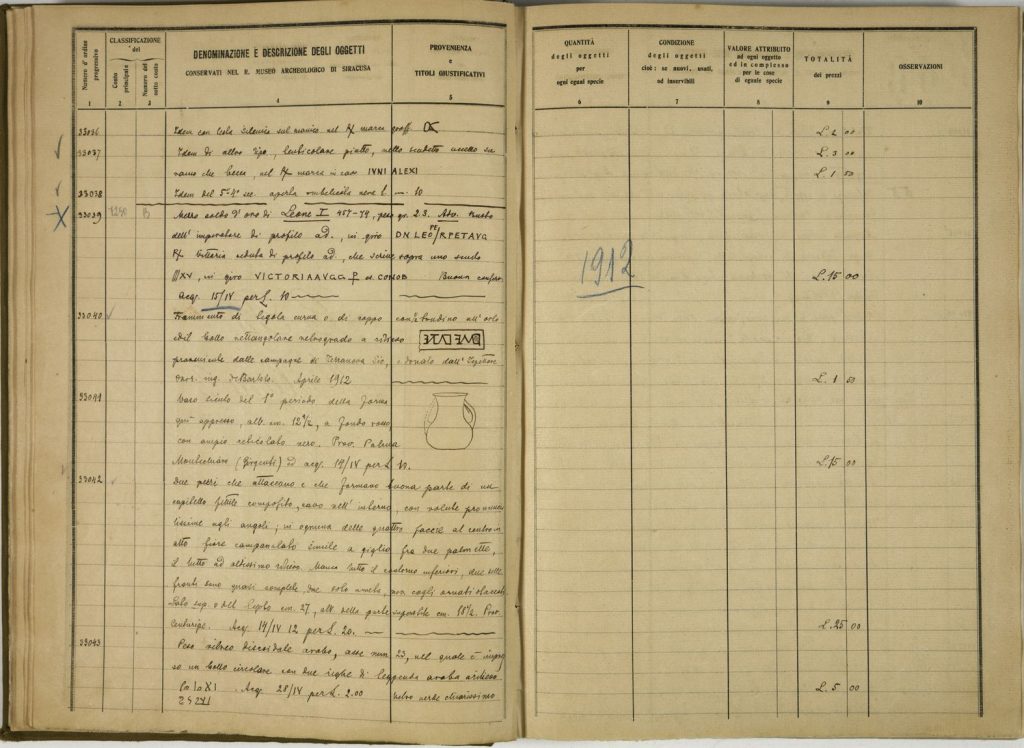 Numero d'ordine progressivo
CLASSIFICAZIONE
del
Conto principale
Numero del sotto conto
DENOMINAZIONE E DESCRIZIONE DEGLI OGGETTI
CONSERVATI NEL R. MUSEO ARCHEOLOGICO DI SIRACUSA
PROVENIENZA
e
TITOLI GIUSTIFICATIVI
1 2 3 4 5
33036 Idem con testa Sileno sul manico nel R/ marca graff
33037 Idem di altro tipo, lenticolare piatto, nello scudetto uccello su
ramo che becca, nel R/ marca in cavo IVNI ALEXI
33038 Idem del 5°-4° sec. aperta ombelicata nera L. — 10
33039 7250 B Mezzo soldo d'oro di Leone I 457-74, peso gr. 2.3. Busto
dell'imperatore di profilo a d., in giro DN LEO PE RPETAVG
R/ Vittoria seduta di profilo a d., che scrive sopra uno scudo
XV, in giro VICTORIAAVGG ed CONOB Buona conserv.
Acq. 15/IV per L. 10
33040 Frammento di tegola curva o di coppo con bordino all'orlo
e del bollo rettangolare retrogrado a rilievo
proveniente dalle campagne di Terranova Sic, e donato dall'Ispettore
onor. ing. DeBartolo. Aprile 1912
33041 Vaso siculo del 1° periodo della forma
qui appresso, alt. cm. 12 1/2, a fondo rosso
con ampio reticolato nero. Prov. Palma
Montechiaro (Girgenti) ed acq. 14/IV per L. 10.
33042 Due pezzi che attaccano e che formano buona parte di un
capitello fittile composito, cavo nell'interno, con volute pronuncia
tissime agli angoli; in ognuna delle quattro faccie al centro un
alto fiore campanulato simile a giglio fra due palmette,
il tutto ad altissimo rilievo. Manca tutto il contorno inferiore, due delle
fronti sono quasi complete, due solo a metà, cogli ornati staccati
Lato sup. cm. 27, alt. della parte superstite cm. 18 1/2. Prov.
Centuripe. Acq. 14/IV 12 per L. 20. —
33043 Peso vitreo discoidale arabo, asse mm 23, nel quale è impres
so un bollo circolare con due righe di leggenda araba a rilievo
Acq. 28/IV per L. 2.00 vetro verde chiarissimo
QUANTITÀ
degli oggetti
per
ogni egual specie
CONDIZIONE
degli oggetti
cioè: se nuovi, usati,
od inservibili
VALORE ATTRIBUITO
ad ogni oggetto
ed in complesso
per le cose
di eguale specie
TOTALITÀ
dei prezzi
OSSERVAZIONI
6 7 8 9 10
L. 2 00
L. 3 00
L. 1 50
1912
L. 15 00
L. 1 50
L. 15 00
L. 25 00
L. 5 00